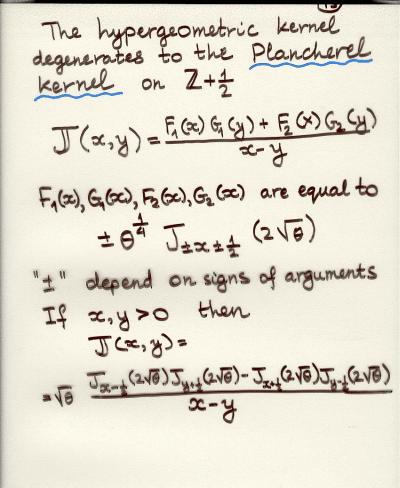 The hypergeometric kernel
degenerates to the Plancherel
kernel on ℤ+1/2
J(x,y) = (F₁(x) G₁(y) + F₂(x) G₂(y)) / (x-y)
F₁(x), G₁(x), F₂(x), G₂(x) are equal to
± θ^(1/4) J_(±x±1/2) (2√θ)
"±" depend on signs of arguments
If x,y>0 then
J(x,y) =
= √θ (J_(x-1/2)(2√θ) J_(y+1/2)(2√θ) - J_(x+1/2)(2√θ) J_(y-1/2)(2√θ)) / (x-y)